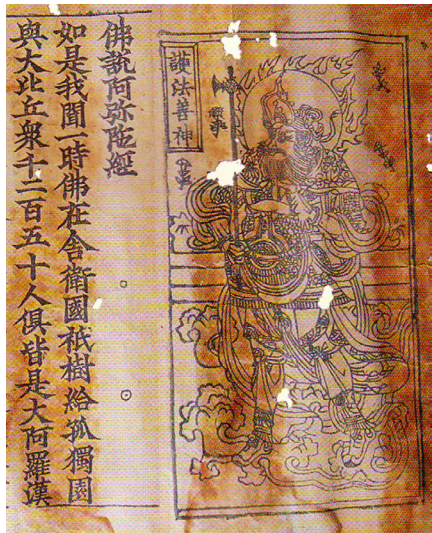 護法善神
佛說阿弥陁經
如是我聞一時佛在舍衛國祇樹給孤獨園
與大比丘衆千二百五十人俱皆是大阿羅漢